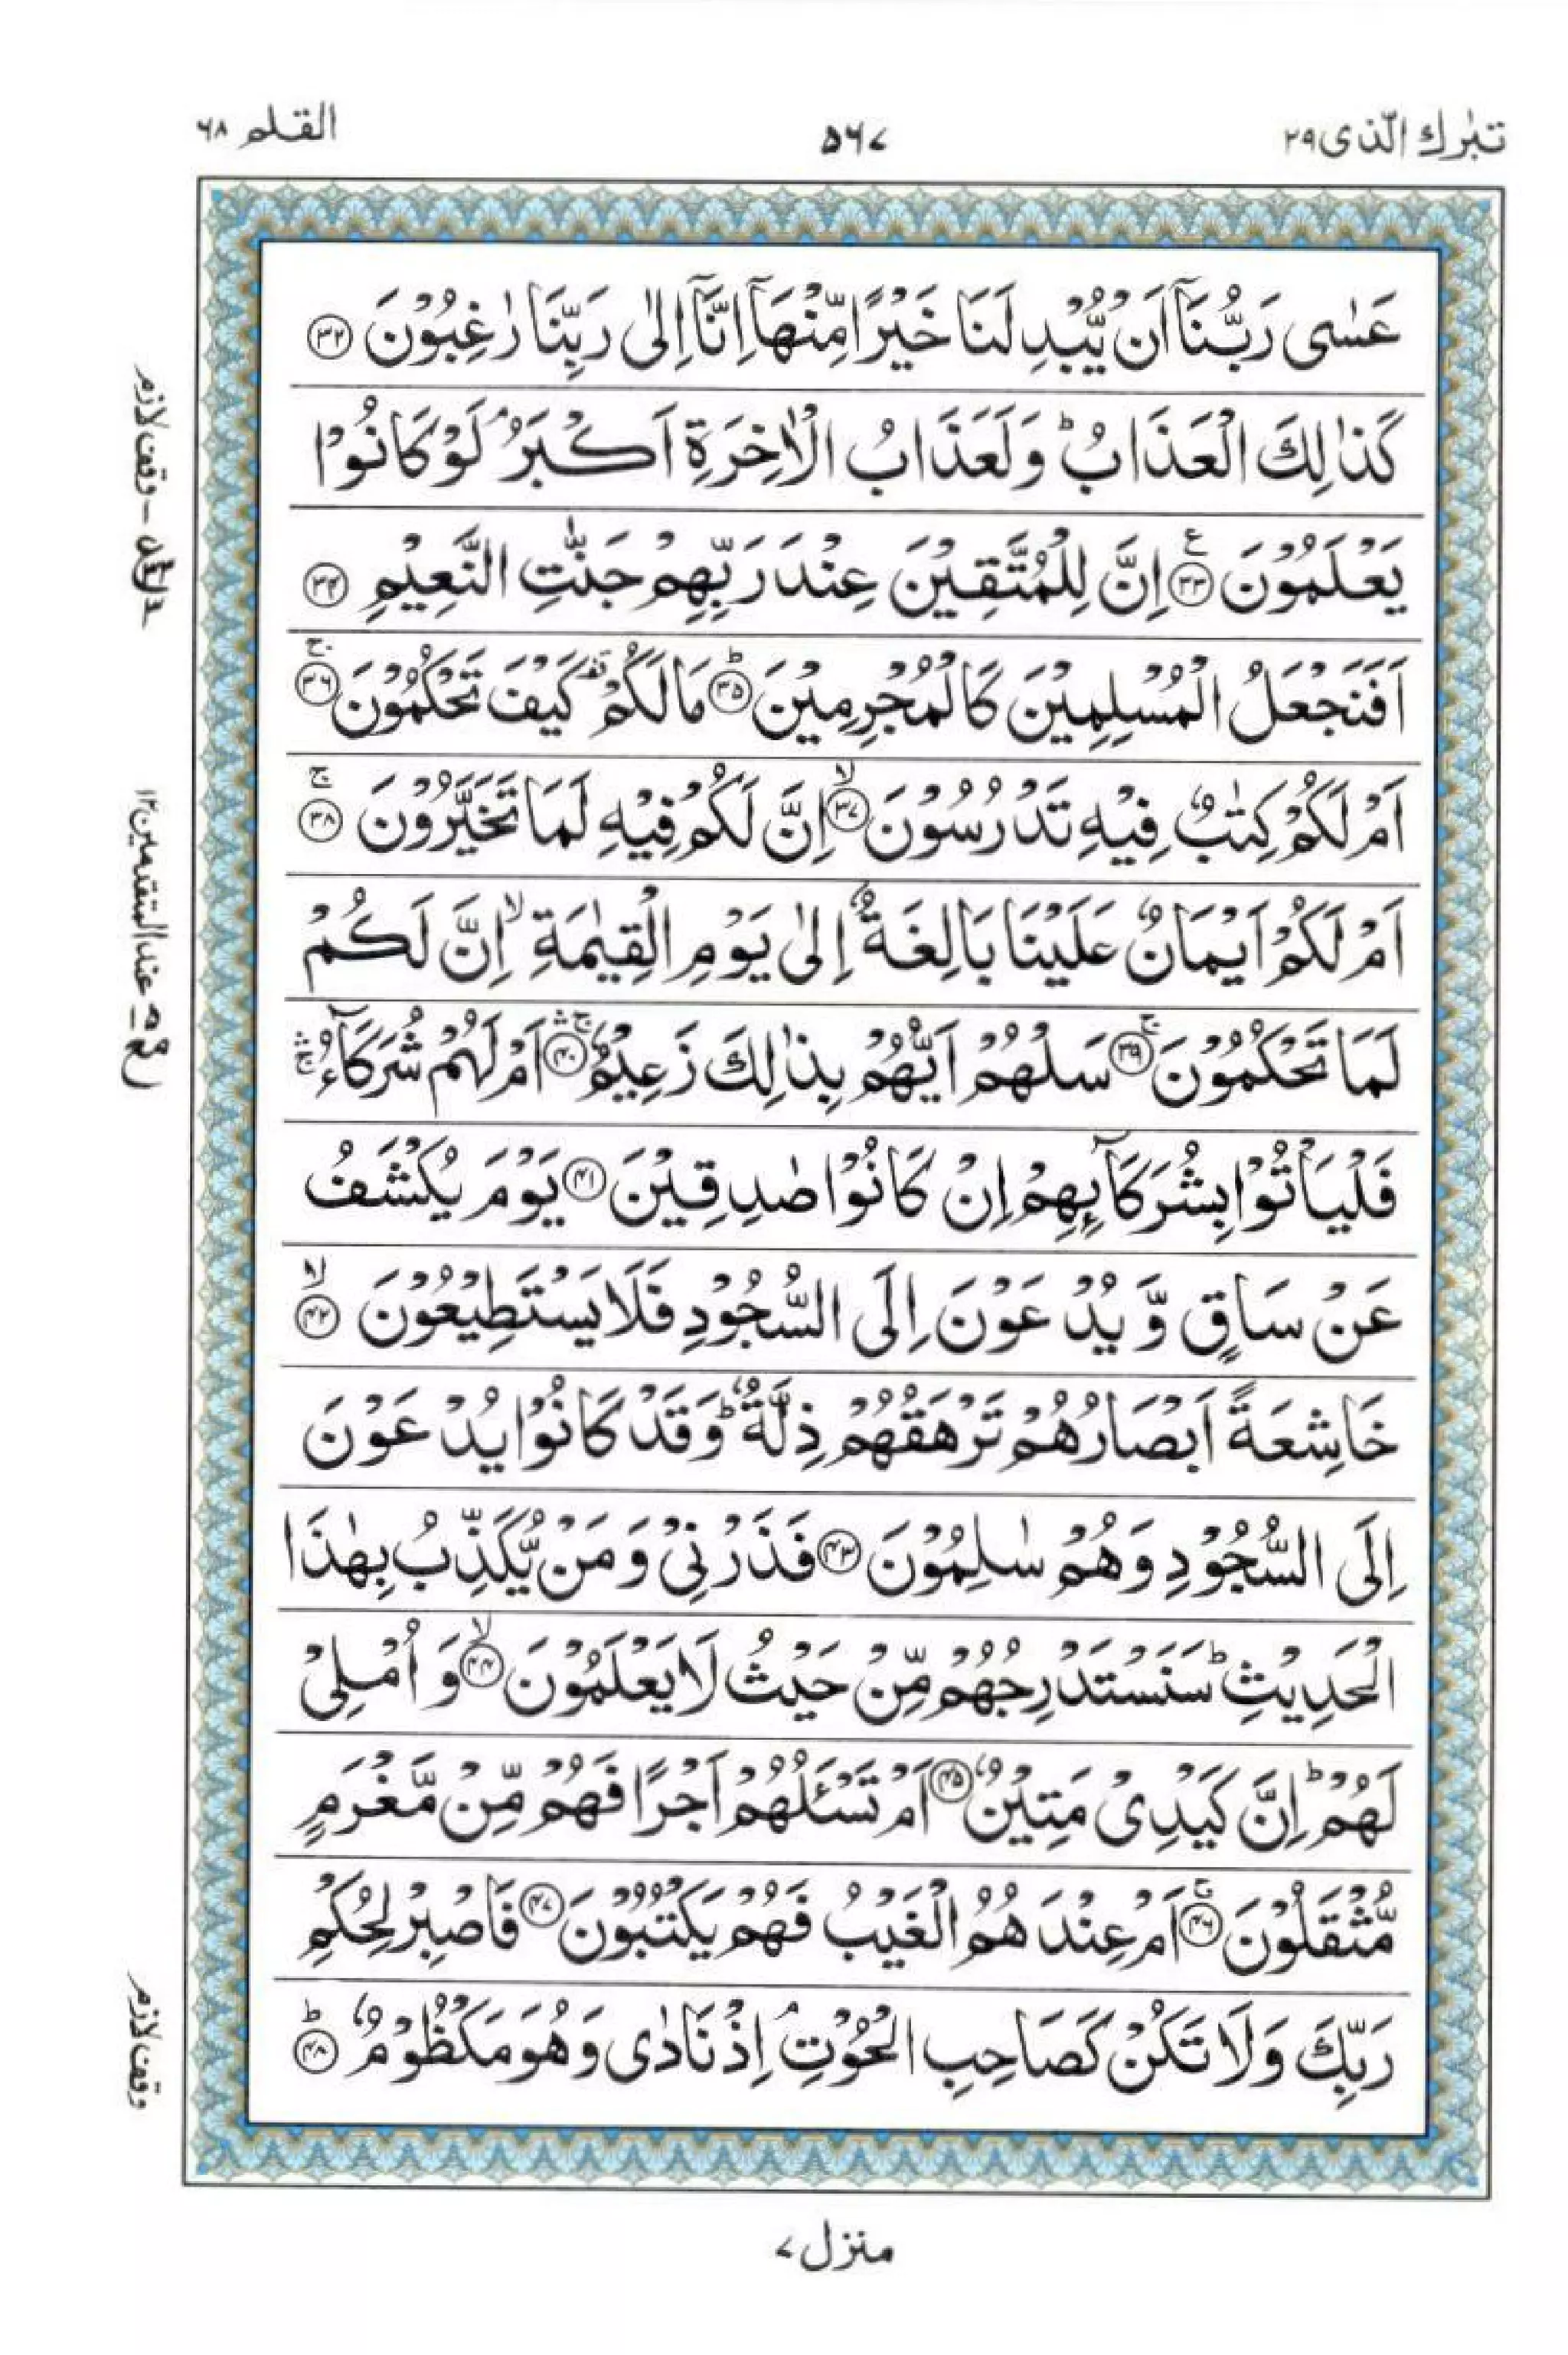 تبٰرك الّذی ۲۹
۵۶۷
القلم ۶۸
عَسٰى رَبُّنَاۤ اَنْ يُّبْدِلَنَا خَيْرًا مِّنْهَاۤ اِنَّاۤ اِلٰى رَبِّنَا رٰغِبُوْنَ ﴿۳۲﴾
كَذٰلِكَ الْعَذَابُ ؕ وَلَعَذَابُ الْاٰخِرَةِ اَكْبَرُ ۘ لَوْ كَانُوْا
يَعْلَمُوْنَ ﴿۳۳﴾ ع اِنَّ لِلْمُتَّقِيْنَ عِنْدَ رَبِّهِمْ جَنّٰتِ النَّعِيْمِ ﴿۳۴﴾
اَفَنَجْعَلُ الْمُسْلِمِيْنَ كَالْمُجْرِمِيْنَ ﴿۳۵﴾ؕ مَا لَكُمْ كَيْفَ تَحْكُمُوْنَ ﴿۳۶﴾ۚ
اَمْ لَكُمْ كِتٰبٌ فِيْهِ تَدْرُسُوْنَ ﴿۳۷﴾ۙ اِنَّ لَكُمْ فِيْهِ لَمَا تَخَيَّرُوْنَ ﴿۳۸﴾ۚ
اَمْ لَكُمْ اَيْمَانٌ عَلَيْنَا بَالِغَةٌ اِلٰى يَوْمِ الْقِيٰمَةِ ۙ اِنَّ لَكُمْ
لَمَا تَحْكُمُوْنَ ﴿۳۹﴾ۚ سَلْهُمْ اَيُّهُمْ بِذٰلِكَ زَعِيْمٌ ﴿۴۰﴾ۚۛ اَمْ لَهُمْ شُرَكَآءُ ۚۛ
فَلْيَاْتُوْا بِشُرَكَآىِٕهِمْ اِنْ كَانُوْا صٰدِقِيْنَ ﴿۴۱﴾ يَوْمَ يُكْشَفُ
عَنْ سَاقٍ وَّيُدْعَوْنَ اِلَى السُّجُوْدِ فَلَا يَسْتَطِيْعُوْنَ ﴿۴۲﴾ۙ
خَاشِعَةً اَبْصَارُهُمْ تَرْهَقُهُمْ ذِلَّةٌ ؕ وَقَدْ كَانُوْا يُدْعَوْنَ
اِلَى السُّجُوْدِ وَهُمْ سٰلِمُوْنَ ﴿۴۳﴾ فَذَرْنِيْ وَمَنْ يُّكَذِّبُ بِهٰذَا
الْحَدِيْثِ ؕ سَنَسْتَدْرِجُهُمْ مِّنْ حَيْثُ لَا يَعْلَمُوْنَ ﴿۴۴﴾ۙ وَاُمْلِيْ
لَهُمْ ؕ اِنَّ كَيْدِيْ مَتِيْنٌ ﴿۴۵﴾ اَمْ تَسْـَٔلُهُمْ اَجْرًا فَهُمْ مِّنْ مَّغْرَمٍ
مُّثْقَلُوْنَ ﴿۴۶﴾ۚ اَمْ عِنْدَهُمُ الْغَيْبُ فَهُمْ يَكْتُبُوْنَ ﴿۴۷﴾ فَاصْبِرْ لِحُكْمِ
رَبِّكَ وَلَا تَكُنْ كَصَاحِبِ الْحُوْتِ ۘ اِذْ نَادٰى وَهُوَ مَكْظُوْمٌ ﴿۴۸﴾ؕ
وقف لازم
عند المتقدمین ۱۲
وقف لازم
منزل ۷